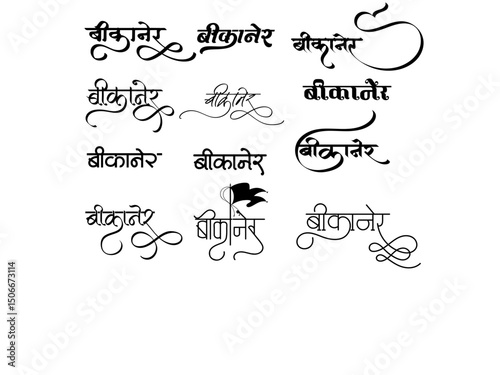 बीकानेर बीकानेर बीकानेर
बीकानेर बीकानेर बीकानेर
बीकानेर बीकानेर बीकानेर
बीकानेर बीकानेर बीकानेर
Adobe Stock | #1506673114